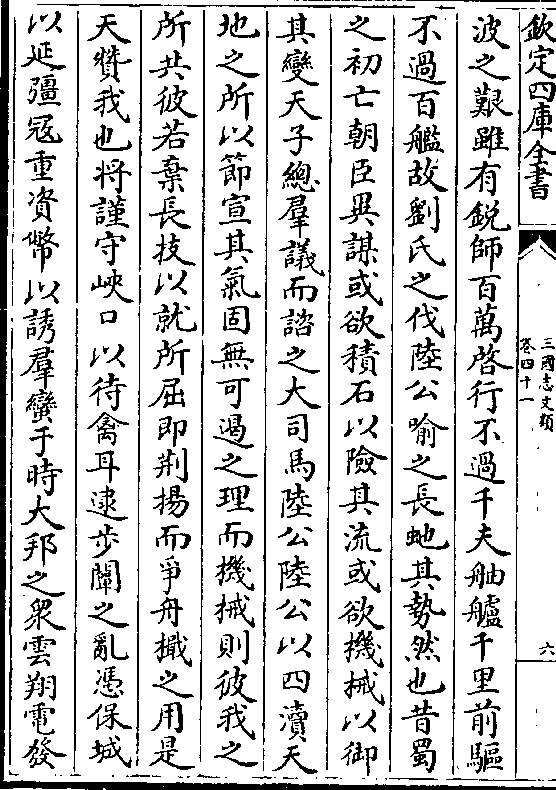 欽定四庫全書
三國志文類
卷四十一
六
波之艱雖有銳師百萬啓行不過千夫舳艫千里前驅
不過百艦故劉氏之伐陸公喻之長虵其勢然也昔蜀
之初亡朝臣異謀或欲積石以險其流或欲機械以御
其變天子總羣議而諮之大司馬陸公陸公以四瀆天
地之所以節宣其氣固無可遏之理而機械則彼我之
所共彼若棄長技以就所屈即荆揚而爭舟檝之用是
天贊我也將謹守峽口以待禽耳逮步闡之亂憑保城
以延彊冦重資幣以誘羣蠻于時大邦之衆雲翔電發